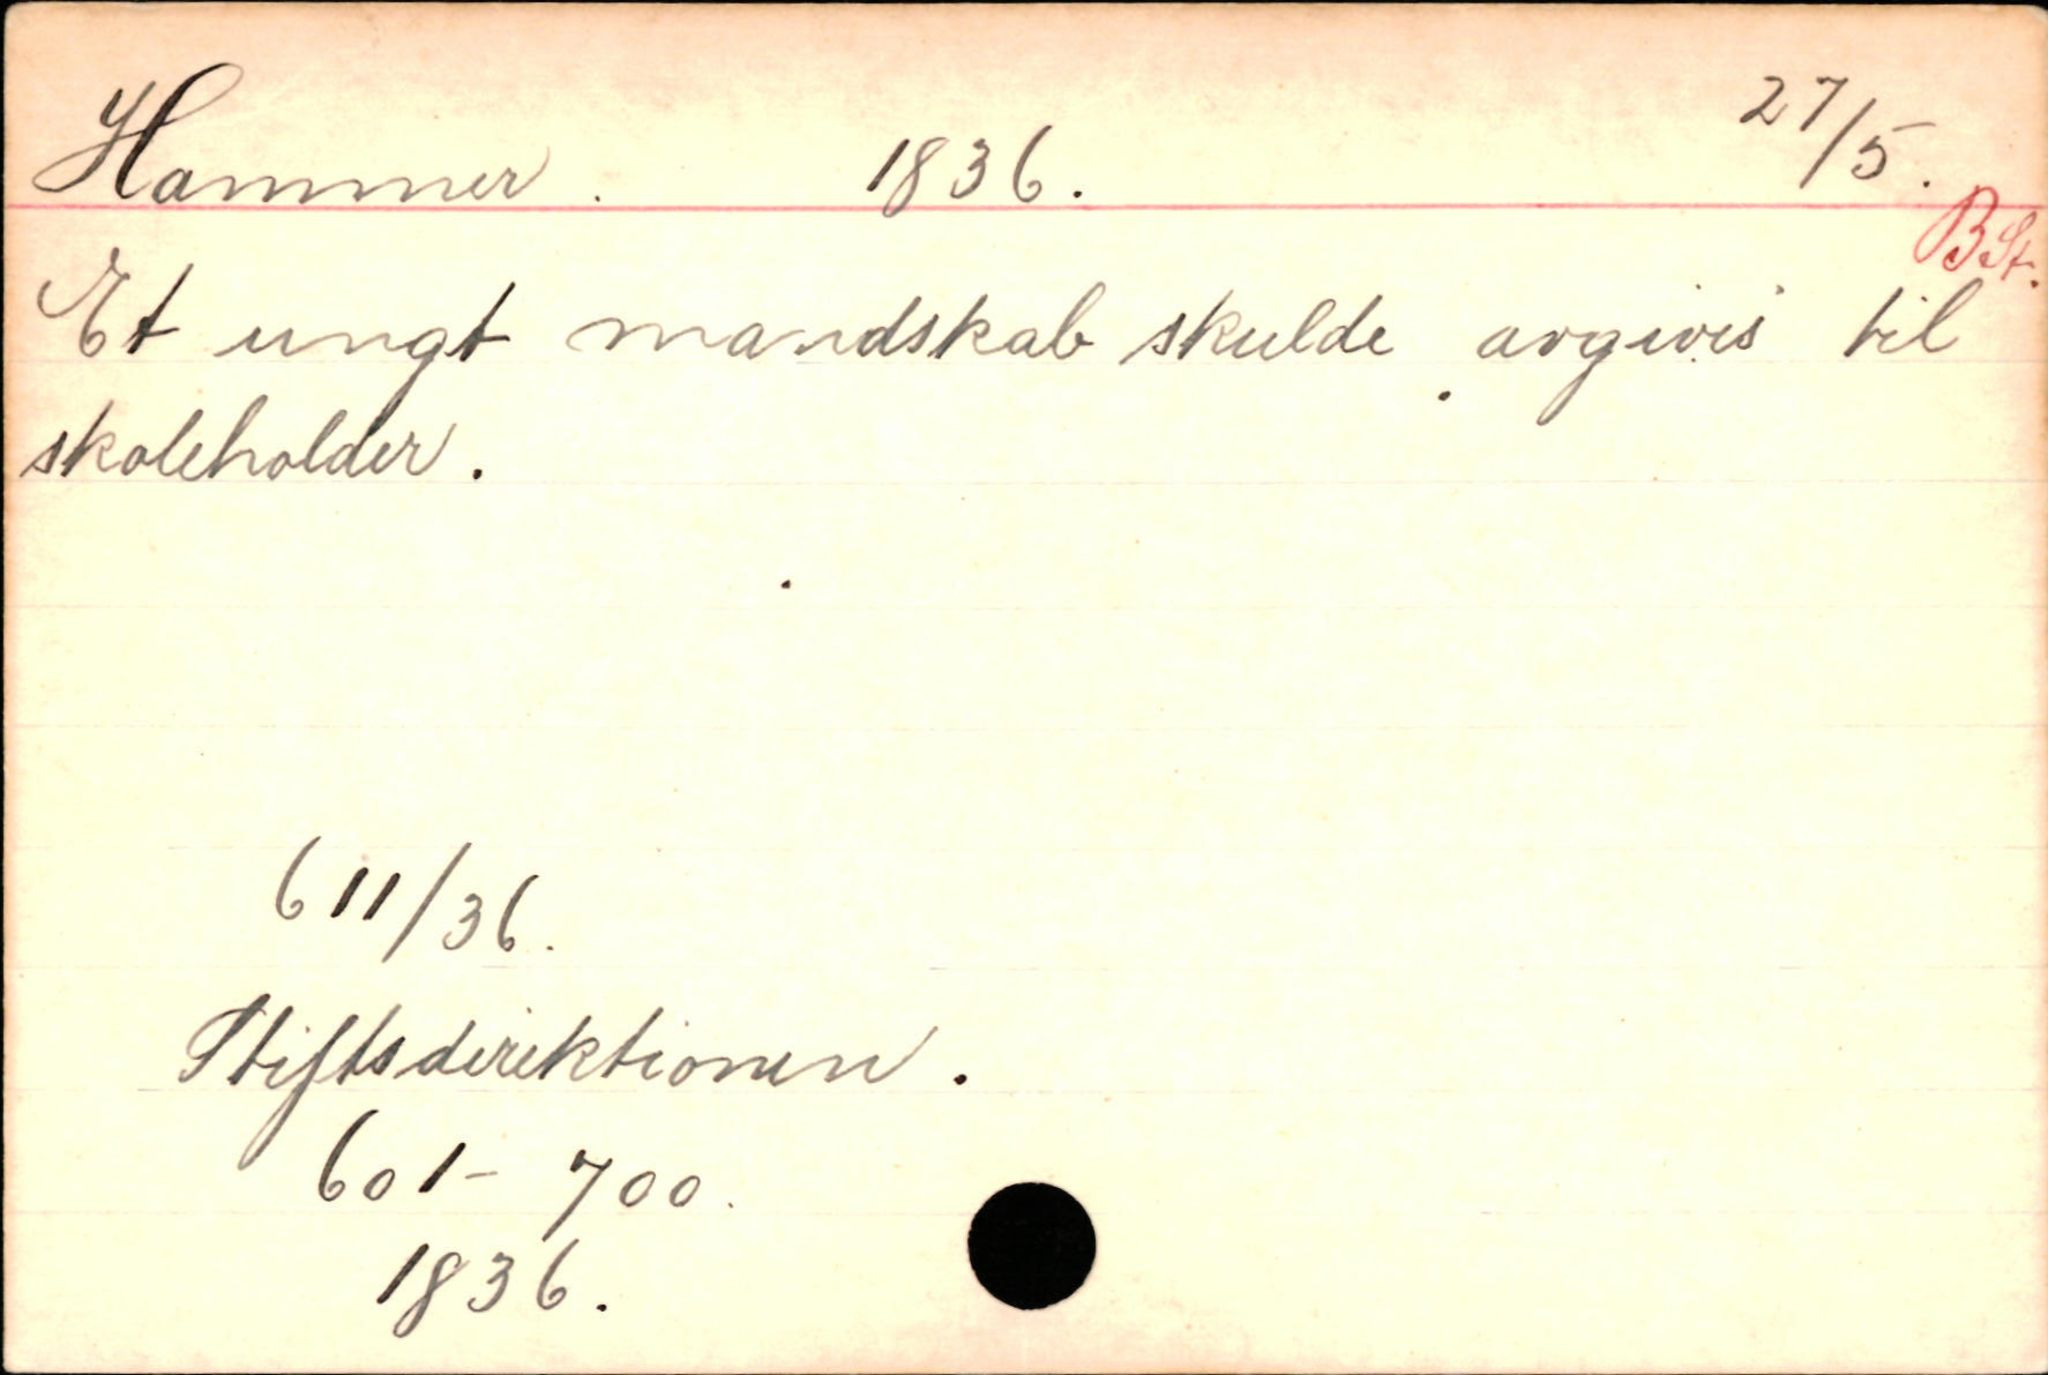 Hammer. 1836. 27/5.
B.St.
Et ungt mandskab skulde avgives til
skoleholder.
611/36.
Stiftsdirektionen.
601- 700.
1836.